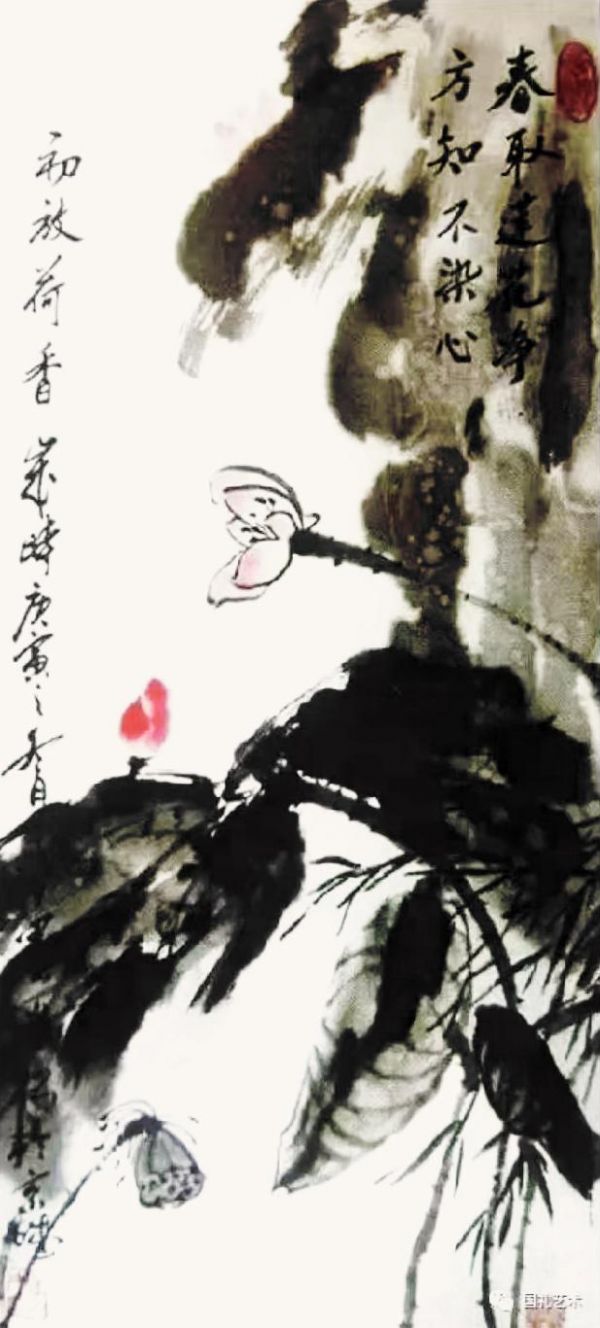 春取莲花净
方知不染心
初放荷香 岁 庚寅之
京城
国礼艺术